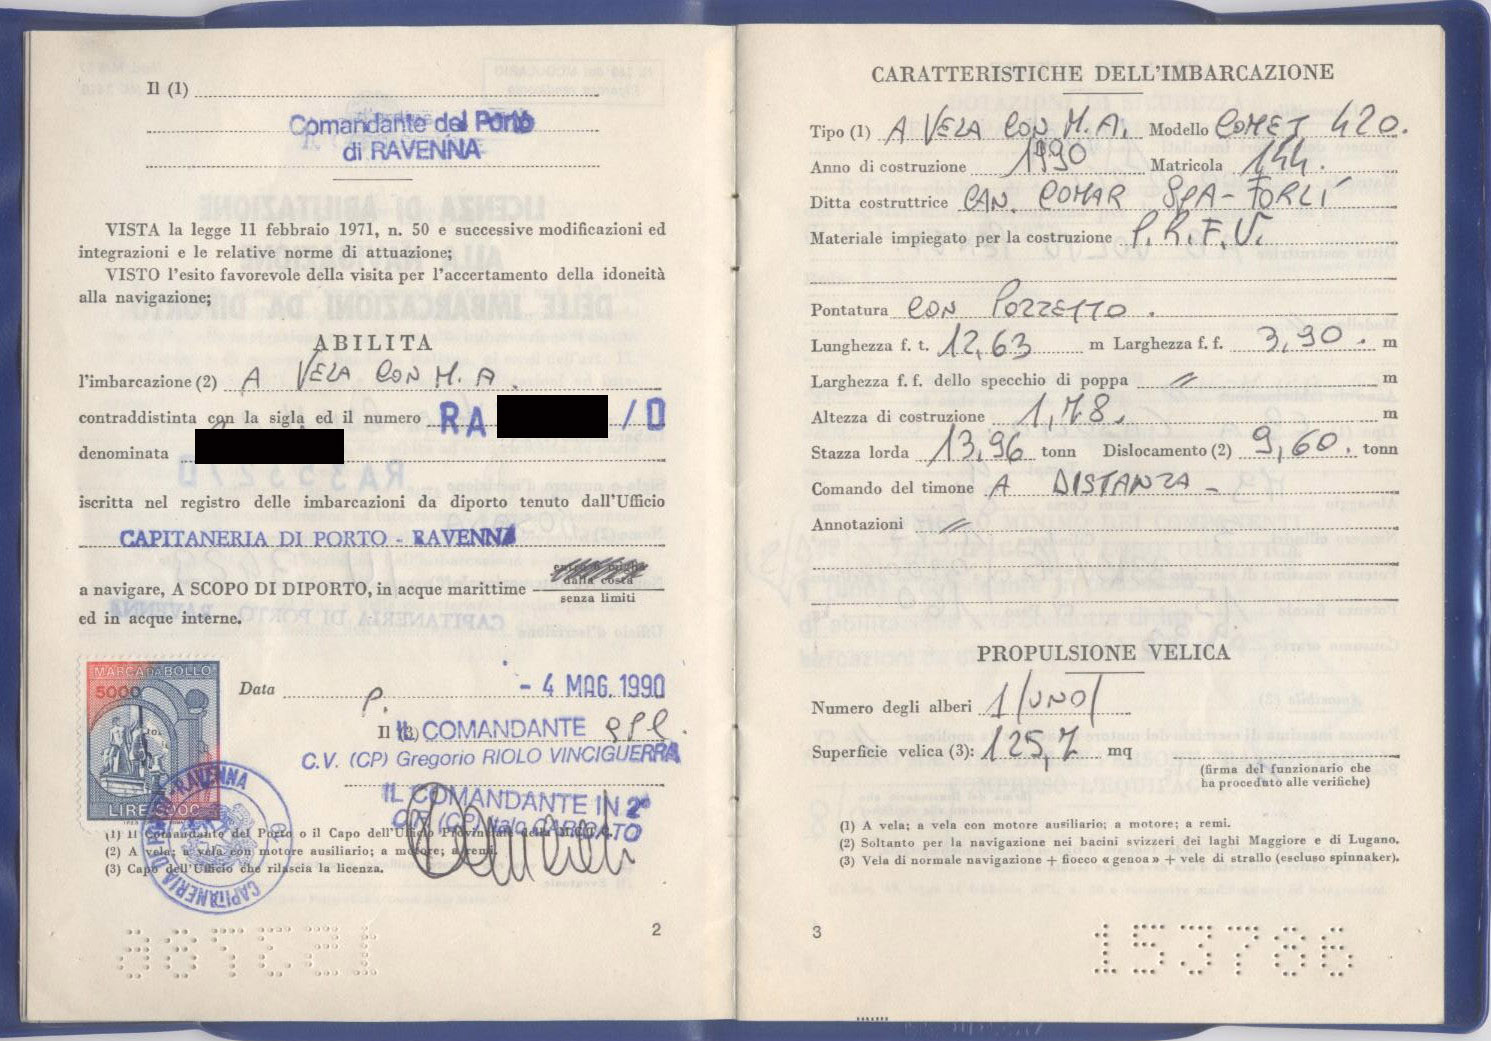 Il (1)
Comandante del Porto
di RAVENNA
VISTA la legge 11 febbraio 1971, n. 50 e successive modificazioni ed
integrazioni e le relative norme di attuazione;
VISTO l'esito favorevole della visita per l'accertamento della idoneità
alla navigazione;
ABILITA
l'imbarcazione (2) A VELA CON M. A.
contraddistinta con la sigla ed il numero RA /D
denominata
iscritta nel registro delle imbarcazioni da diporto tenuto dall'Ufficio
CAPITANERIA DI PORTO - RAVENNA
a navigare, A SCOPO DI DIPORTO, in acque marittime
dalla costa
senza limiti
ed in acque interne.
MARCA DA BOLLO
5000
LIRE 5000
Data - 4 MAG. 1990
p.
Il (3) IL COMANDANTE
C.V. (CP) Gregorio RIOLO VINCIGUERRA
IL COMANDANTE IN 2ª
(1) Il Comandante del Porto o il Capo dell'Ufficio Provinciale della M.C.T.C.
(2) A vela; a vela con motore ausiliario; a motore; a remi.
(3) Capo dell'Ufficio che rilascia la licenza.
CAPITANERIA DI PORTO - RAVENNA
2
CARATTERISTICHE DELL'IMBARCAZIONE
Tipo (1) A VELA CON M.A. Modello COMET 420.
Anno di costruzione 1990 Matricola 144.
Ditta costruttrice CAN. COMAR SPA - FORLÍ
Materiale impiegato per la costruzione P.R.F.V.
Pontatura CON POZZETTO.
Lunghezza f. t. 12,63 m Larghezza f. f. 3,90. m
Larghezza f. f. dello specchio di poppa // m
Altezza di costruzione 1,78. m
Stazza lorda 13,96 tonn Dislocamento (2) 9,60. tonn
Comando del timone A DISTANZA -
Annotazioni //
PROPULSIONE VELICA
Numero degli alberi 1/UNO/
Superficie velica (3): 125,7 mq
(firma del funzionario che
ha proceduto alle verifiche)
(1) A vela; a vela con motore ausiliario; a motore; a remi.
(2) Soltanto per la navigazione nei bacini svizzeri dei laghi Maggiore e di Lugano.
(3) Vela di normale navigazione + fiocco « genoa » + vele di strallo (escluso spinnaker).
3
153786